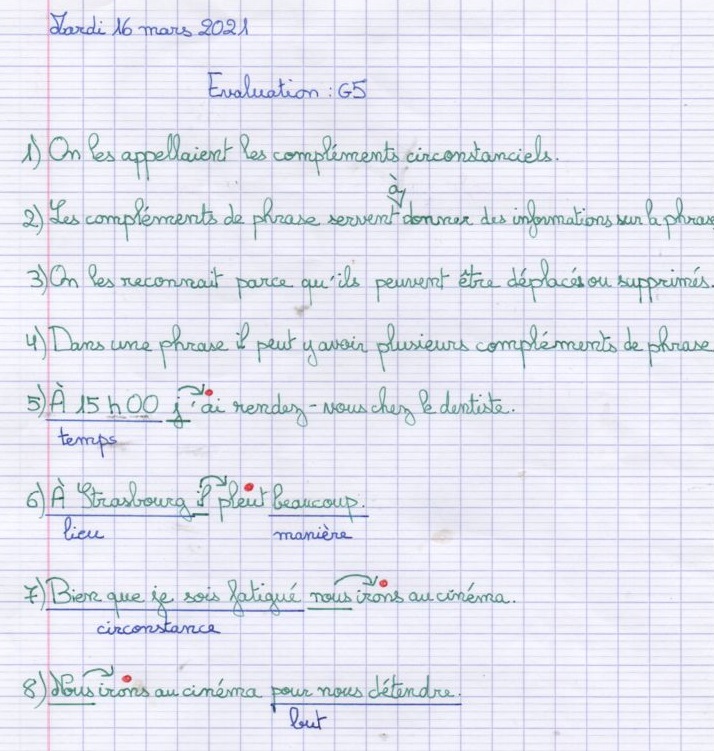 Mardi 16 mars 2021
Evaluation : G5
1) On les appellaient les compléments circonstanciels.
à
2) Les compléments de phrase servent donner des informations sur la phrase
3) On les reconnait parce qu'ils peuvent être déplacés ou supprimés.
4) Dans une phrase il peut y avoir plusieurs compléments de phrase
5) À 15 h 00 j'ai rendez-vous chez le dentiste.
temps
6) À Strasbourg il pleut beaucoup.
lieu manière
7) Bien que je sois fatigué nous irons au cinéma.
circonstance
8) Nous irons au cinéma pour nous détendre.
but